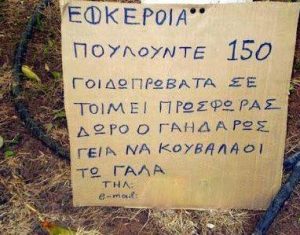 ΕΦΚΕΡΟΙΑ"
ΠΟΥΛΟΥΝΤΕ 150
ΓΟΙΔΩΠΡΩΒΑΤΑ ΣΕ
ΤΟΙΜΕΙ ΠΡΟΣΦΩΡΑΣ
ΔΩΡΟ Ο ΓΑΗΔΑΡΩΣ
ΓΕΙΑ ΝΑ ΚΟΥΒΑΛΑΟΙ
ΤΩ ΓΑΛΑ
ΤΗΛ:
e-mail: